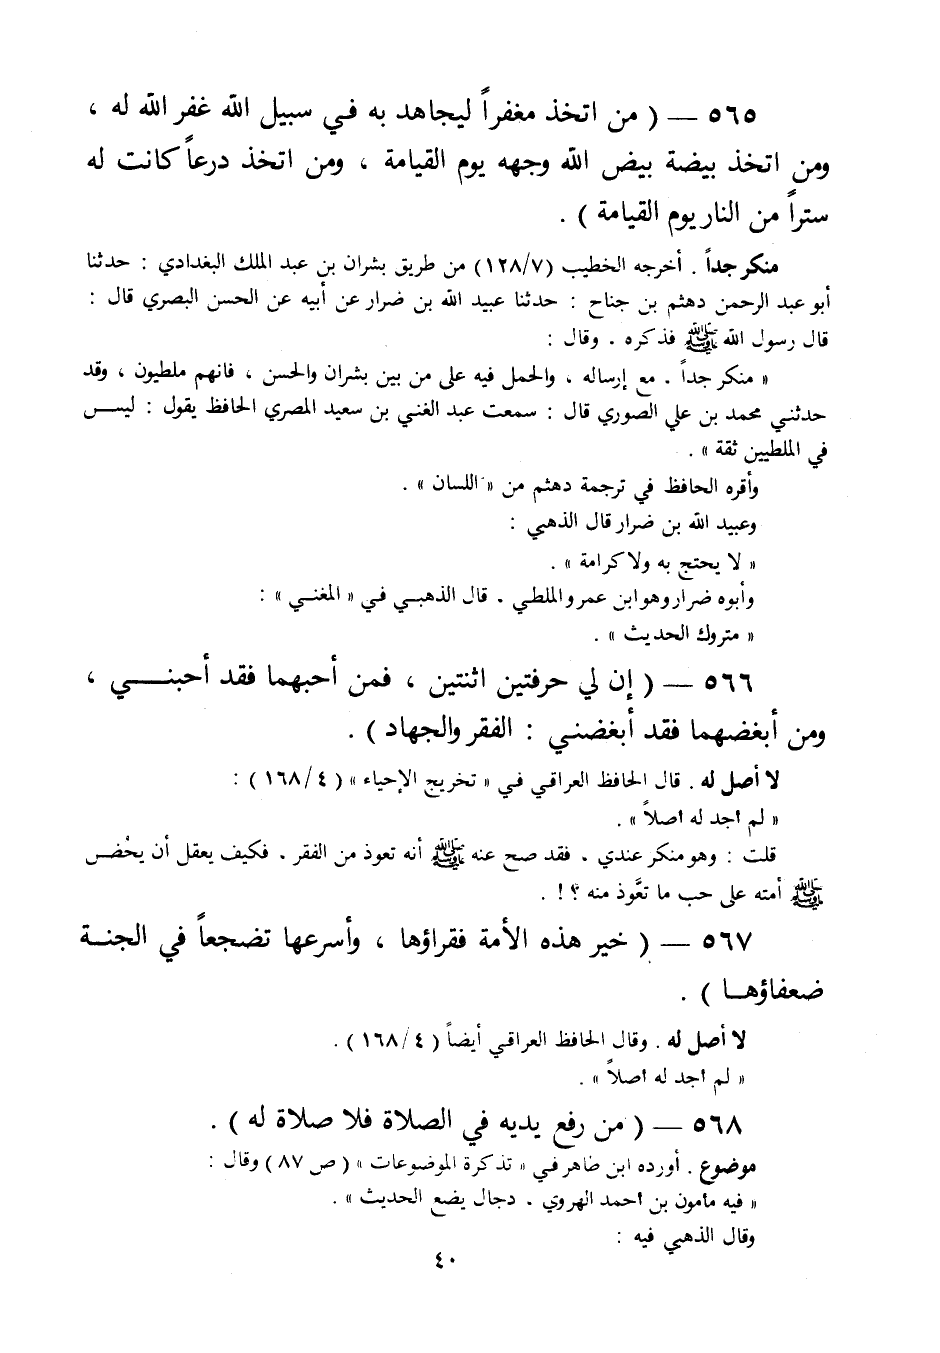 ٥٦٥ — ( من اتخذ مغفراً ليجاهد به في سبيل الله غفر الله له ،
ومن اتخذ بيضة بيض الله وجهه يوم القيامة ، ومن اتخذ درعاً كانت له
ستراً من النار يوم القيامة ) .
منكر جداً . أخرجه الخطيب (١٢٨/٧) من طريق بشران بن عبد الملك البغدادي : حدثنا
أبو عبد الرحمن دهثم بن جناح : حدثنا عبيد الله بن ضرار عن أبيه عن الحسن البصري قال :
قال رسول الله ﷺ فذكره . وقال :
« منكر جداً . مع إرساله ، والحمل فيه على من بين بشران والحسن ، فانهم ملطيون ، وقد
حدثني محمد بن علي الصوري قال : سمعت عبد الغني بن سعيد المصري الحافظ يقول : ليس
في الملطيين ثقة » .
وأقره الحافظ في ترجمة دهثم من « اللسان » .
وعبيد الله بن ضرار قال الذهبي :
« لا يحتج به ولا كرامة » .
وأبوه ضرار وهو ابن عمرو الملطي . قال الذهبي في « المغني » :
« متروك الحديث » .
٥٦٦ — ( إن لي حرفتين اثنتين ، فمن أحبهما فقد أحبني ،
ومن أبغضهما فقد أبغضني : الفقر والجهاد ) .
لا أصل له . قال الحافظ العراقي في « تخريج الإحياء » ( ١٦٨/٤ ) :
« لم أجد له أصلاً » .
قلت : وهو منكر عندي . فقد صح عنه ﷺ أنه تعوذ من الفقر . فكيف يعقل أن يحُض
ﷺ أمته على حب ما تعَّوذ منه ؟! .
٥٦٧ — ( خير هذه الأمة فقراؤها ، وأسرعها تضجعاً في الجنة
ضعفاؤها ) .
لا أصل له . وقال الحافظ العراقي أيضاً ( ١٦٨/٤ ) .
« لم أجد له أصلاً » .
٥٦٨ — ( من رفع يديه في الصلاة فلا صلاة له ) .
موضوع . أورده ابن طاهر في « تذكرة الموضوعات » ( ص ٨٧ ) وقال :
« فيه مأمون بن أحمد الهروي . دجال يضع الحديث » .
وقال الذهبي فيه :
٤٠